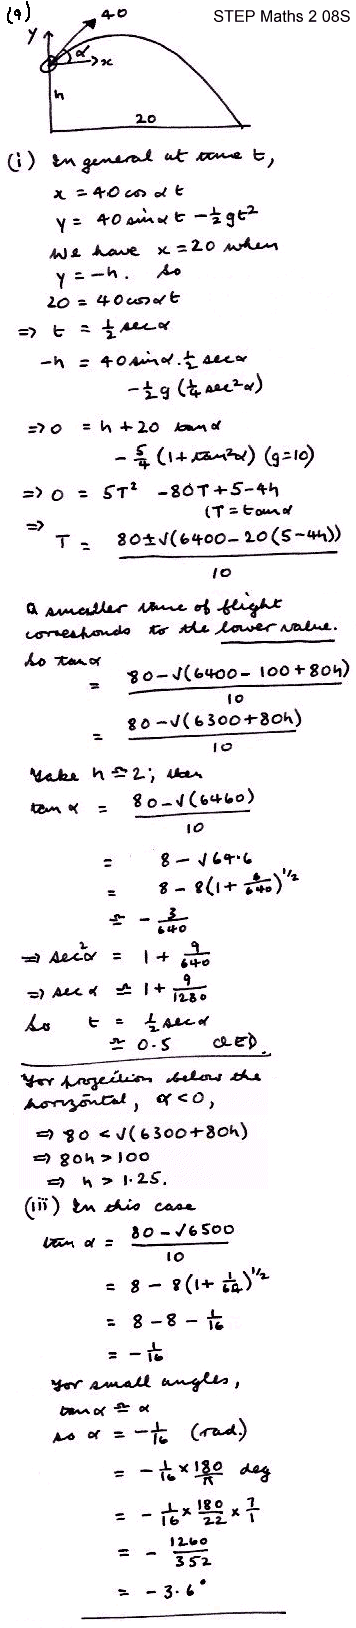 (9)
STEP Maths 2 08S
40
y
α
x
h
20
(i) In general at time t,
x = 40 cos α t
y = 40 sin α t - ½gt²
We have x = 20 when
y = -h. So
20 = 40 cos α t
⇒ t = ½ sec α
-h = 40 sin α . ½ sec α
- ½g (¼ sec² α)
⇒ 0 = h + 20 tan α
- 5/4 (1 + tan² α) (g=10)
⇒ 0 = 5T² - 80T + 5 - 4h
(T = tan α
⇒
T = 80 ± √(6400 - 20(5 - 4h)) / 10
A smaller time of flight
corresponds to the lower value.
So tan α
= 80 - √(6400 - 100 + 80h) / 10
= 80 - √(6300 + 80h) / 10
Take h ≏ 2; then
tan α = 80 - √(6460) / 10
= 8 - √64.6
= 8 - 8(1 + 6/640)^1/2
≏ - 3/640
⇒ sec² α = 1 + 9/640
⇒ sec α ≏ 1 + 9/1280
So t = ½ sec α
≏ 0.5 QED.
For projection below the
horizontal, α < 0,
⇒ 80 < √(6300 + 80h)
⇒ 80h > 100
⇒ h > 1.25.
(iii) In this case
tan α = 80 - √6500 / 10
= 8 - 8(1 + 1/64)^1/2
= 8 - 8 - 1/16
= - 1/16
For small angles,
tan α ≏ α
so α = - 1/16 (rad.)
= - 1/16 × 180/π deg
= - 1/16 × 180/22 × 7/1
= - 1260/352
= - 3.6°